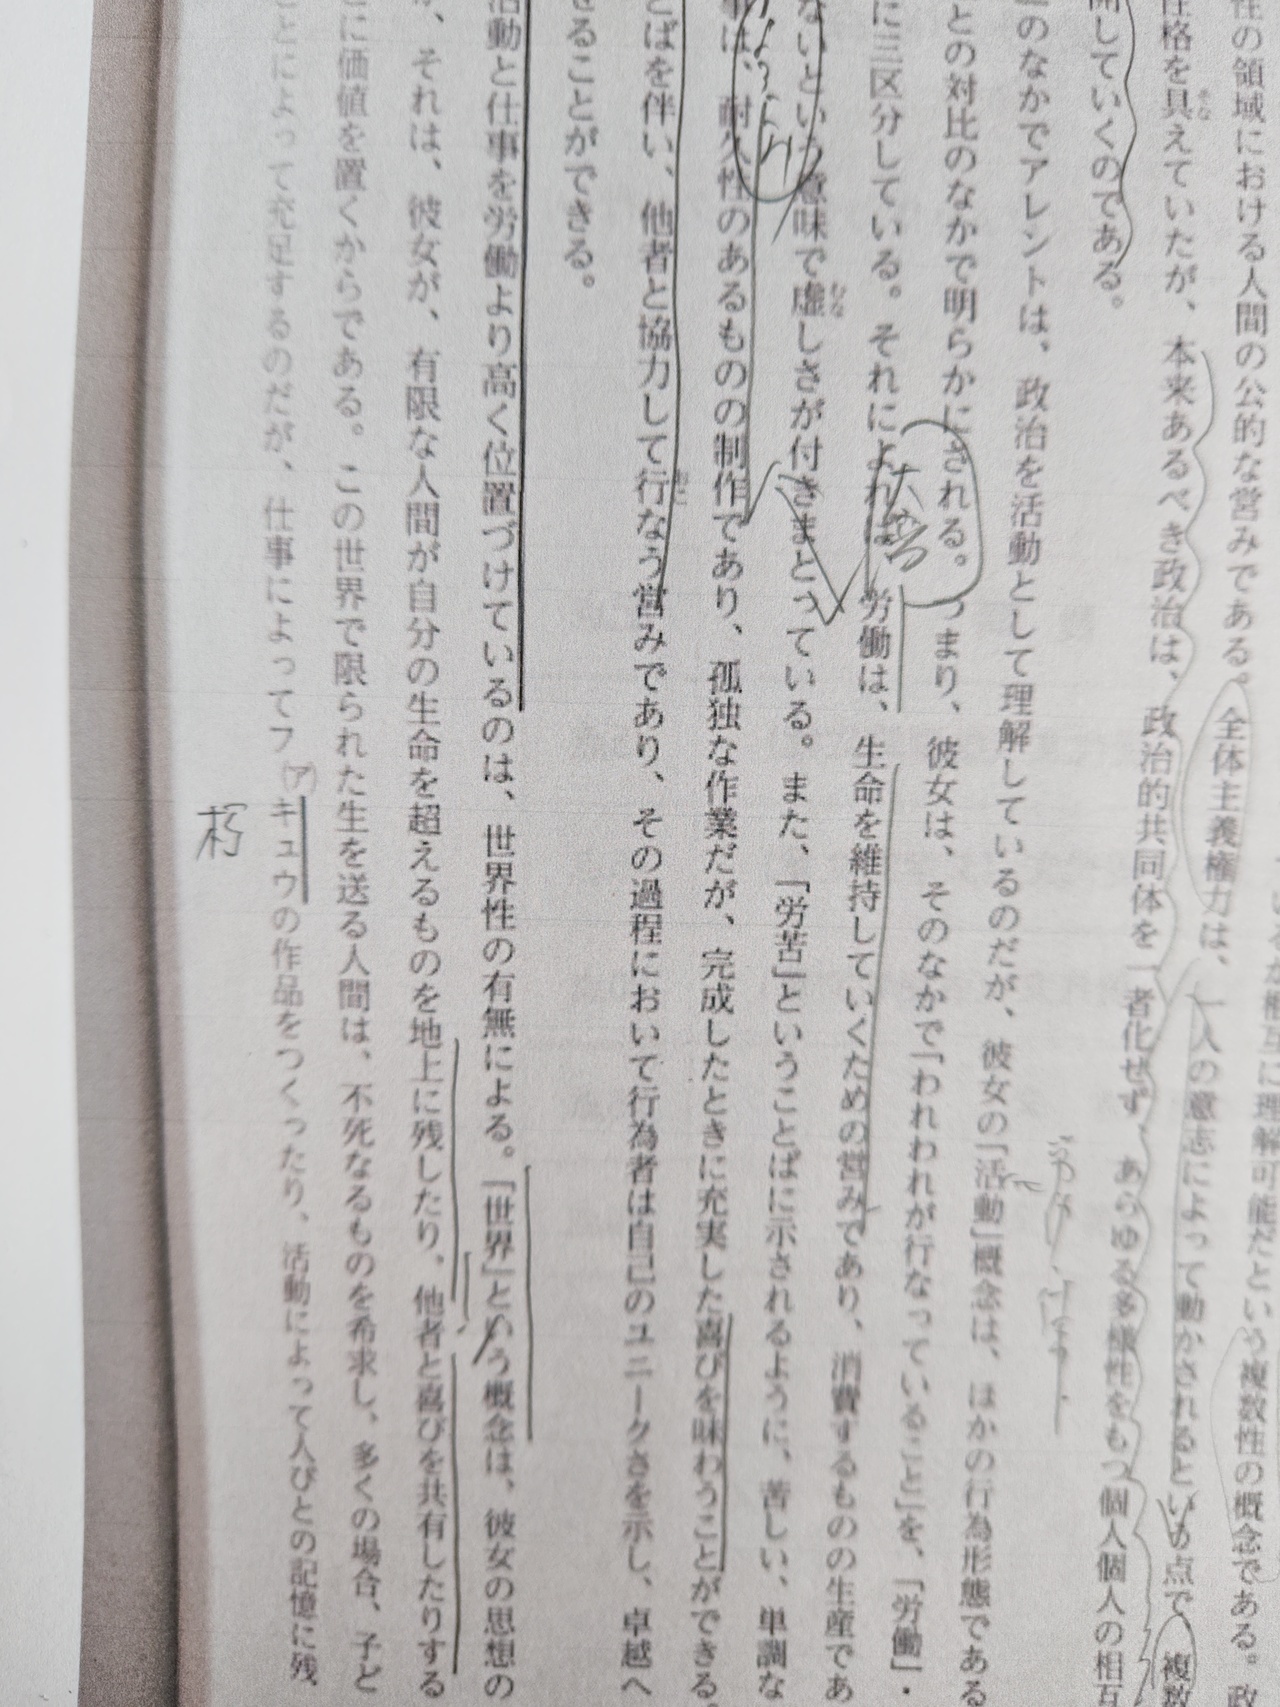 性の領域における人間の公的な営みである。政
相互に理解可能だという複数性の概念である。
全体主義権力は、一人の意志によって動かされるという点で複数
性格を具えていたが、本来あるべき政治は、政治的共同体を一者化せず、あらゆる多様性をもつ個人個人の相互
開していくのである。
のなかでアレントは、政治を活動として理解しているのだが、彼女の「活動」概念は、ほかの行為形態である
との対比のなかで明らかにされる。つまり、彼女は、そのなかで「われわれが行なっていること」を、「労働」・
に三区分している。それによれば、労働は、生命を維持していくための営みであり、消費するものの生産であ
ないという意味で虚しさが付きまとっている。また、「労苦」ということばに示されるように、苦しい、単調な
事は、耐久性のあるものの制作であり、孤独な作業だが、完成したときに充実した喜びを味わうことができる。
とばを伴い、他者と協力して行なう営みであり、その過程において行為者は自己のユニークさを示し、卓越へ
せることができる。
活動と仕事を労働より高く位置づけているのは、世界性の有無による。「世界」という概念は、彼女の思想の
が、それは、彼女が、有限な人間が自分の生命を超えるものを地上に残したり、他者と喜びを共有したりする
に価値を置くからである。この世界で限られた生を送る人間は、不死なるものを希求し、多くの場合、子ど
とによって充足するのだが、仕事によってフ(ア)キュウの作品をつくったり、活動によって人びとの記憶に残
朽